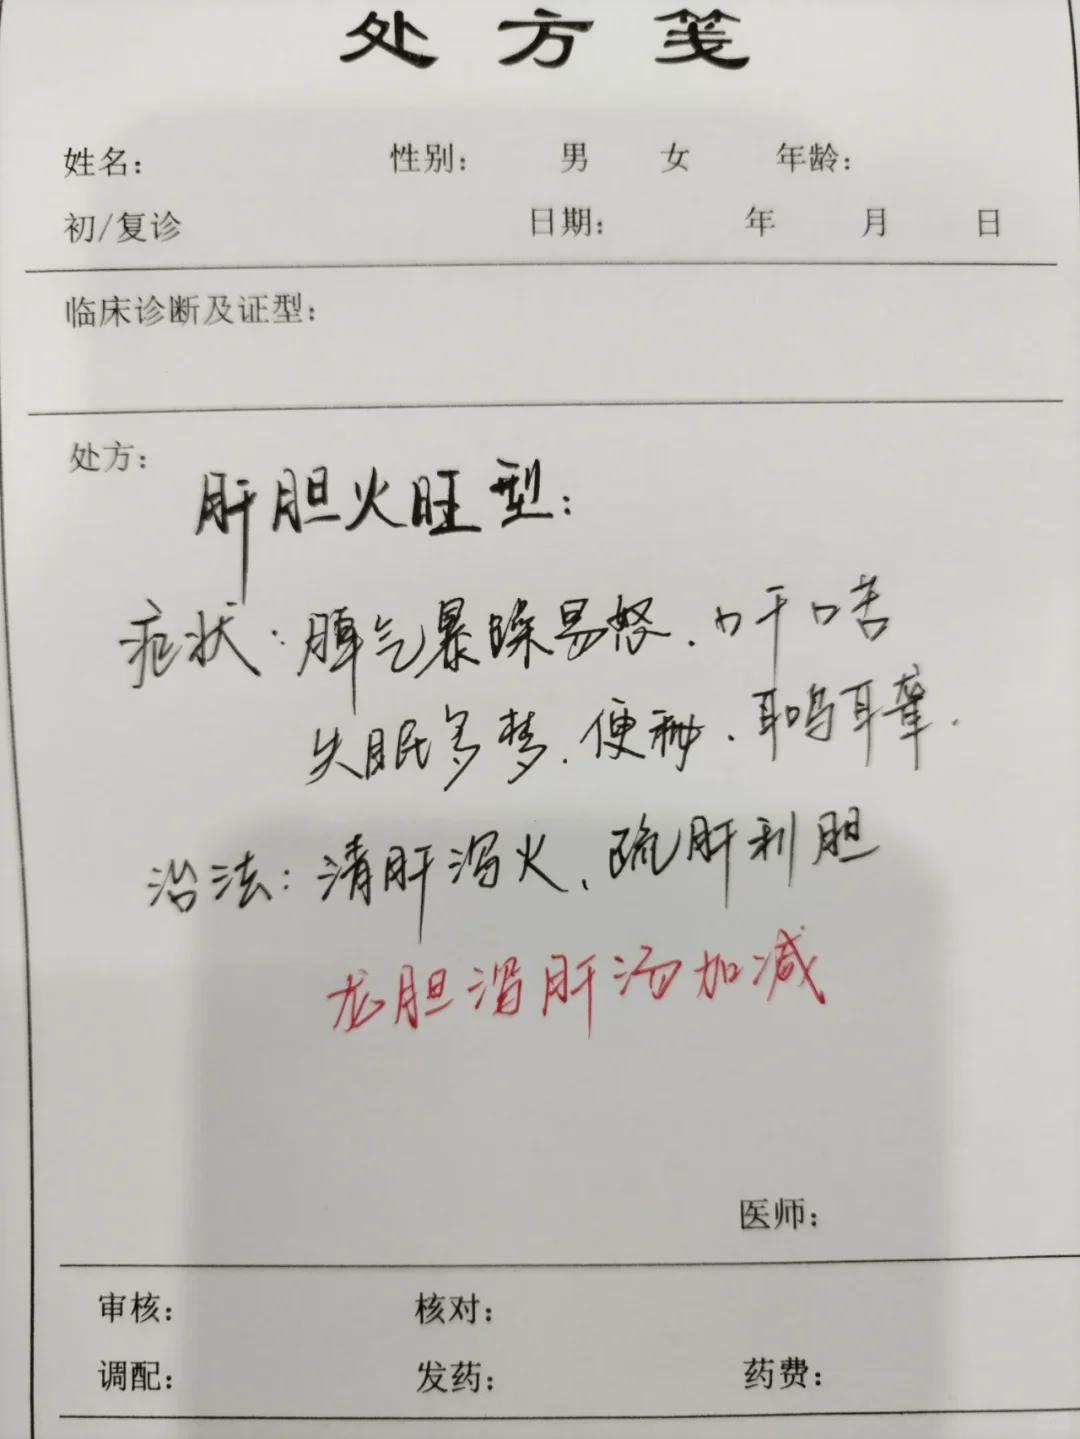 处方笺
姓名: 性别: 男 女 年龄:
初/复诊 日期: 年 月 日
临床诊断及证型:
处方:
肝胆火旺型:
症状:脾气暴躁易怒.口干口苦
失眠多梦.便秘.耳鸣耳聋.
治法:清肝泻火、疏肝利胆
龙胆泻肝汤加减
医师:
审核: 核对:
调配: 发药: 药费: